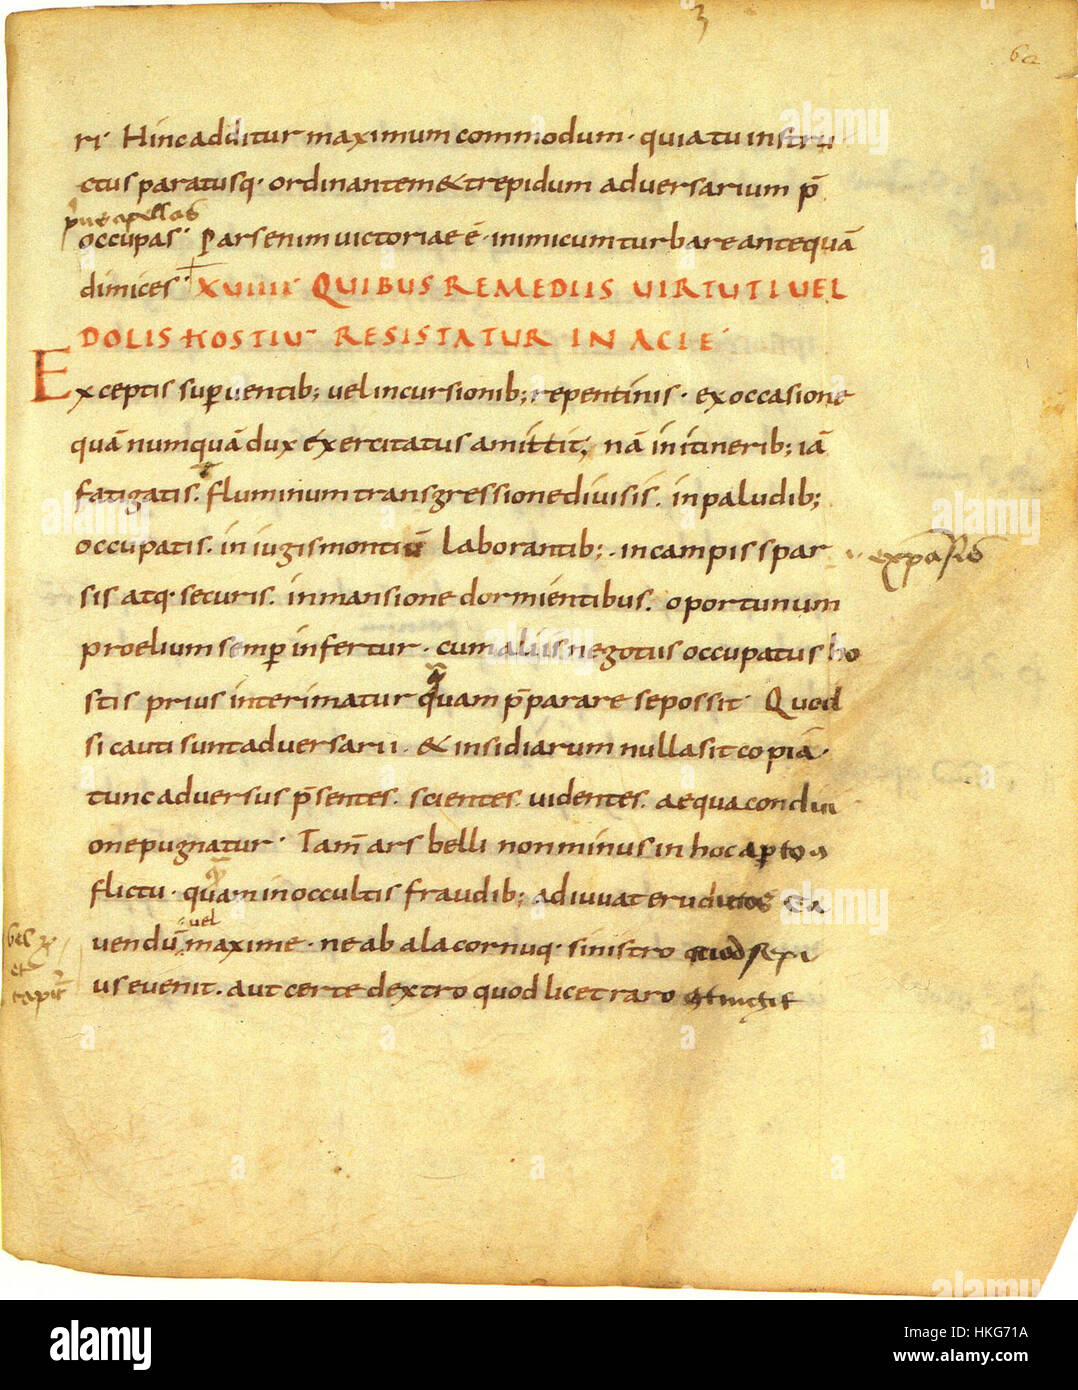 3
62
ri· Hinc additur maximum commodum· quia tu instru
ctus paratusq· ordinantem & trepidum adversarium p̄
occupas· Pars enim victoriae ē· inimicum turbare antequā
dimices· XVIIII QUIBUS REMEDIIS UIRTUTI UEL
DOLIS HOSTIU RESISTATUR IN ACIE
Exceptis superventib; vel incursionib; repentinis· ex occasione
quā numquā dux exercitatus amittit, nā in itinerib; iā
fatigatis. fluminum transgressione divisis. in paludib;
occupatis. in iugis montiū laborantib;· in campis spar
sis atq· securis. in mansione dormientibus. oportunum
proelium semp infertur· cum aliis negotiis occupatus ho
stis prius interimatur quam p̄parare se possit Quod
si cauti sunt adversarii· & insidiarum nulla sit copiā·
tunc adversus p̄sentes. scientes. videntes. aequa conditi
one pugnatur· Tam̄ ars belli non minus in hoc aperto
flictu· quam in occultis fraudib; adiuvat eruditos Ca
vendū vel maxime· ne ab ala cornuq· sinistro quod sepi
us evenit. aut certe dextro quod licet raro
alamy
alamy
Image ID: HKG71A
www.alamy.com